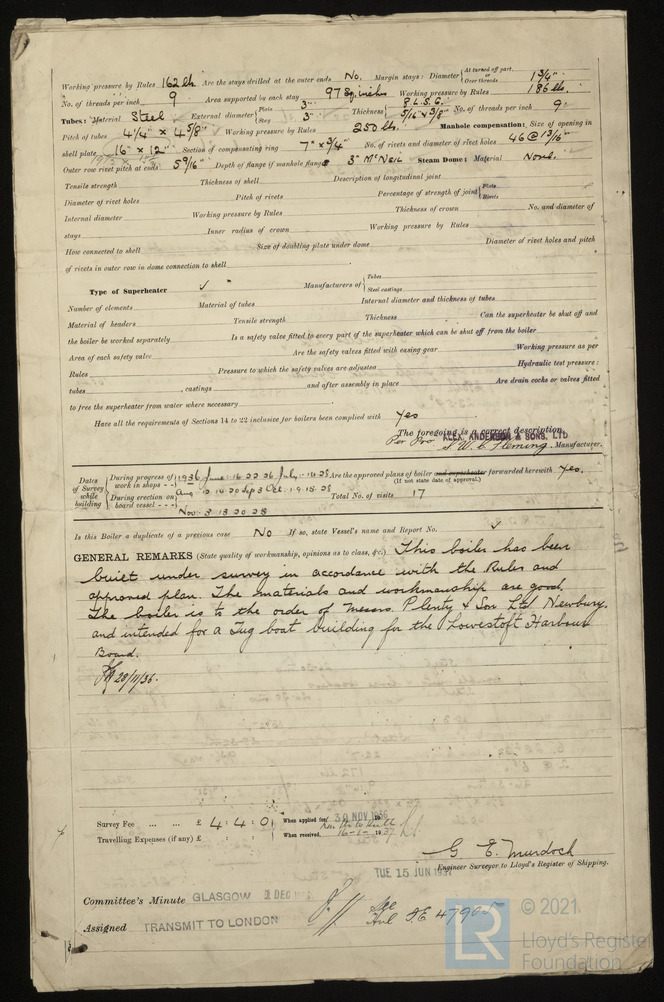 Working pressure by Rules 162 lb. Are the stays drilled at the outer ends No. Margin stays: Diameter { At turned off part, or Over threads 1 3/4"
No. of threads per inch 9 Area supported by each stay 97 Sq. inches Working pressure by Rules 186 lb.
Tubes: Material Steel External diameter { Plain 3" Stay 3" Thickness { 8 L.S.G. 5/16 × 3/8" No. of threads per inch 9
Pitch of tubes 4 1/4" × 4 5/8" Working pressure by Rules 250 lb. Manhole compensation: Size of opening in
shell plate 16" × 12" Section of compensating ring 7" × 3/4" No. of rivets and diameter of rivet holes 46 @ 13/16"
Outer row rivet pitch at ends 5 9/16" Depth of flange if manhole flanged 3" McNeil Steam Dome: Material None.
Tensile strength Thickness of shell Description of longitudinal joint
Diameter of rivet holes Pitch of rivets Percentage of strength of joint { Plate Rivets
Internal diameter Working pressure by Rules Thickness of crown No. and diameter of
stays Inner radius of crown Working pressure by Rules
How connected to shell Size of doubling plate under dome Diameter of rivet holes and pitch
of rivets in outer row in dome connection to shell
Type of Superheater Manufacturers of { Tubes Steel castings
Number of elements Material of tubes Internal diameter and thickness of tubes
Material of headers Tensile strength Thickness Can the superheater be shut off and
the boiler be worked separately Is a safety valve fitted to every part of the superheater which can be shut off from the boiler
Area of each safety valve Are the safety valves fitted with easing gear Working pressure as per
Rules Pressure to which the safety valves are adjusted Hydraulic test pressure:
tubes , castings and after assembly in place Are drain cocks or valves fitted
to free the superheater from water where necessary
Have all the requirements of Sections 14 to 22 inclusive for boilers been complied with Yes
The foregoing is a correct description,
Per Pro ALEX. ANDERSON & SONS, LTD
W. L. Fleming. Manufacturer.
Dates of Survey while building { During progress of work in shops - - 1936 June 16 22 26 July 14 28 Are the approved plans of boiler and superheater forwarded herewith Yes.
(If not state date of approval.)
During erection on board vessel - - - Aug 12 14 20 Sep 3 Oct 1 9 15 28 Total No. of visits 17
Nov 3 13 20 28
Is this Boiler a duplicate of a previous case No If so, state Vessel's name and Report No.
GENERAL REMARKS (State quality of workmanship, opinions as to class, &c.) This boiler has been
built under survey in accordance with the Rules and
approved plan. The materials and workmanship are good.
The boiler is to the order of Messrs Plenty & Son Ltd Newbury,
and intended for a Tug boat building for the Lowestoft Harbour
Board.
28/11/36.
Survey Fee ... ... £ 4 : 4 : 0 When applied for, 30 NOV 1936
Travelling Expenses (if any) £ : : When received, 16-1-1937
G. E. Murdoch
Engineer Surveyor to Lloyd's Register of Shipping.
TUE 15 JUN 1937
Committee's Minute GLASGOW 1 DEC
Assigned TRANSMIT TO LONDON
See
F.E. 47905
LR
© 2021
Lloyd's Register
Foundation